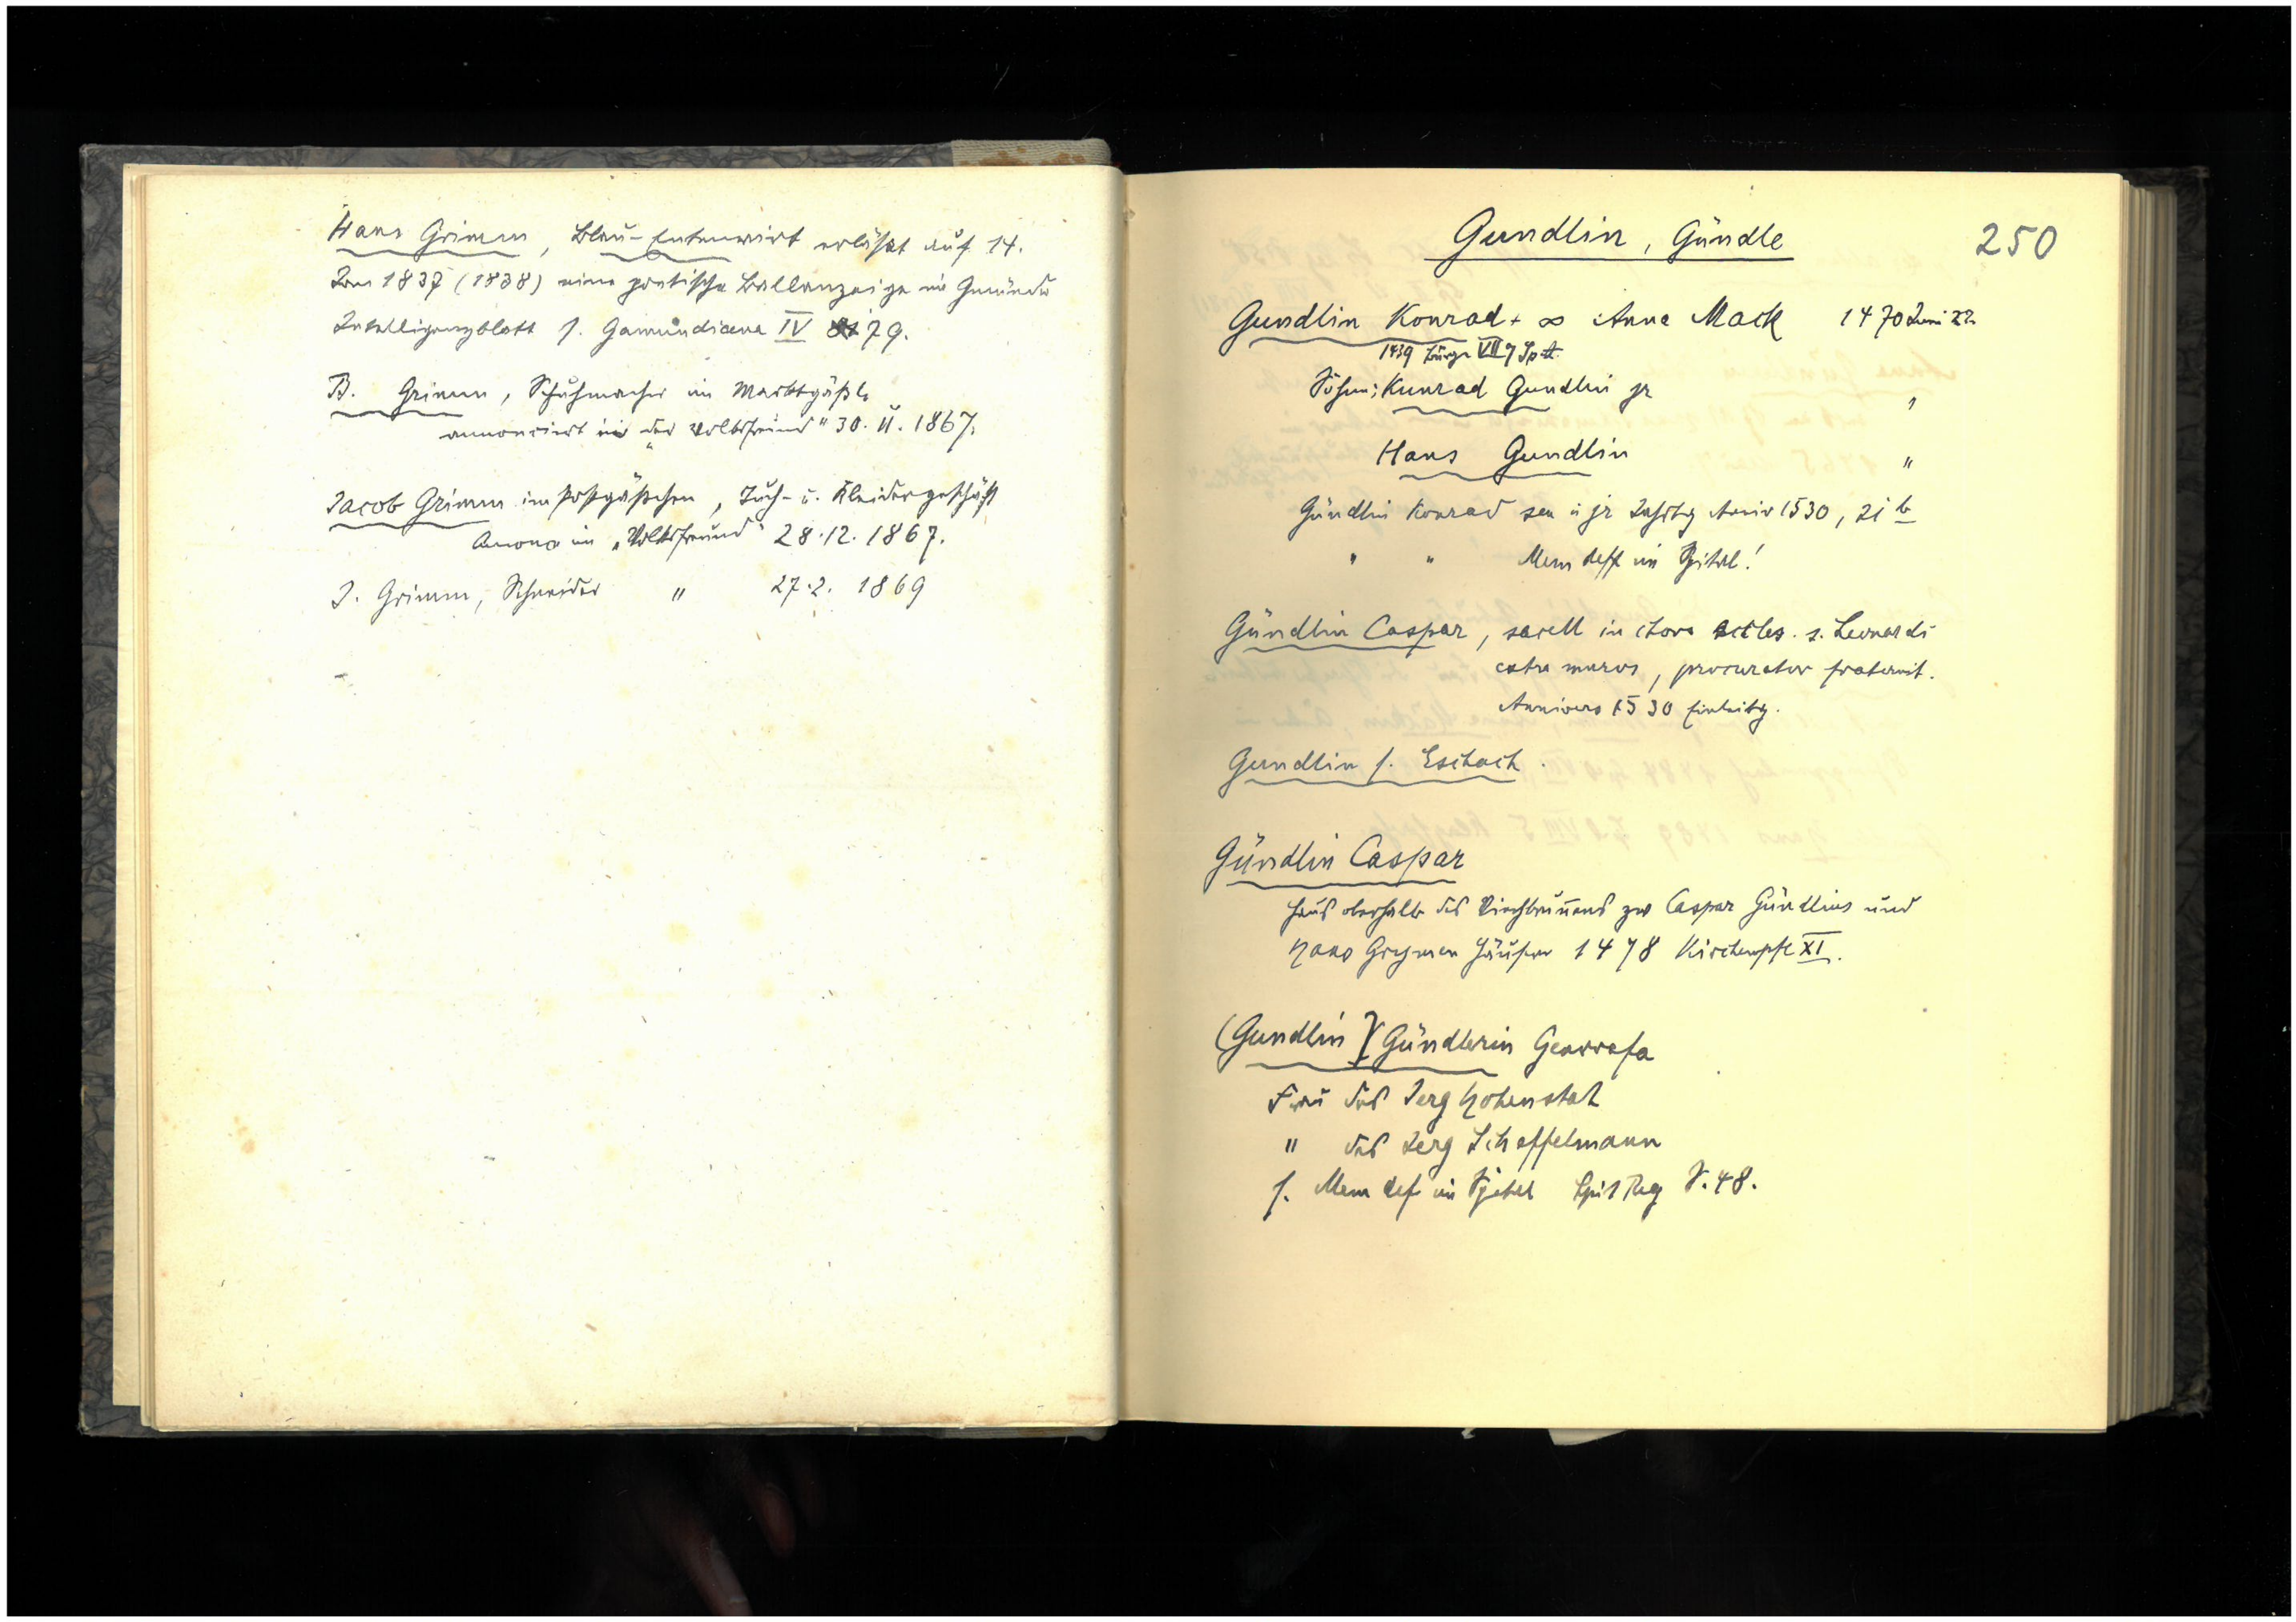 Hans Grimm, Blau-Entenwirt erläßt auf 14.
Jan 1837 (1838) eine poetische Ballanzeige im Gmünder
Intelligenzblatt s. Gamundiana IV 79.
B. Grimm, Schuhmacher im Marktgäßle
annonciert im "der Volksfreund" 30. II. 1867.
Jacob Grimm im Postgäßchen, Tuch- u. Kleidergeschäft
Annonc im "Volksfreund" 28.12.1867.
J. Grimm, Schneider " 27.2. 1869
250
Gundlin, Gündle
Gundlin Konrad + ∞ Anna Mack 1470 Juni 22.
1439 Bürge VII 7 Sp A
Söhne: Kunrad Gundlin jr "
Hans Gundlin "
Gündlin Konrad sen u jr Aniv 1530, 21 b
" " Mem deff im Spital!
Gündlin Caspar, sacell in choro eccles. s. Leonardi
extra muros, procurator fraternit.
Annivers 1530 Einleitg.
Gundlin s. Eschach.
Gündlin Caspar
Haus oberhalb des Kirchbrunnens zw Caspar Gündlins und
Hans Grymen Häuser 1478 Kirchenpfl XI.
(Gundlin) Gündlerin Genovefa
Frau des Jerg Hohenstat
" des Jerg Scheffelmann
s. Mem def im Spital Spit Reg S. 48.